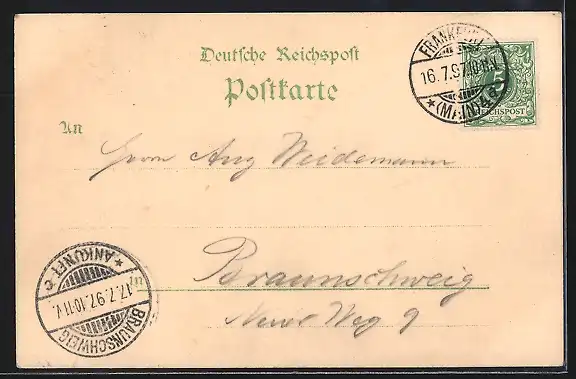 Deutsche Reichspost
Postkarte
FRANKFURT
16.7.97.10
(MAIN)
REICHSPOST
An
Herrn Aug Weidemann
Braunschweig
Neue Weg 9
ANKUNFT c
17.7.97.10-11.V.
BRAUNSCHWEIG